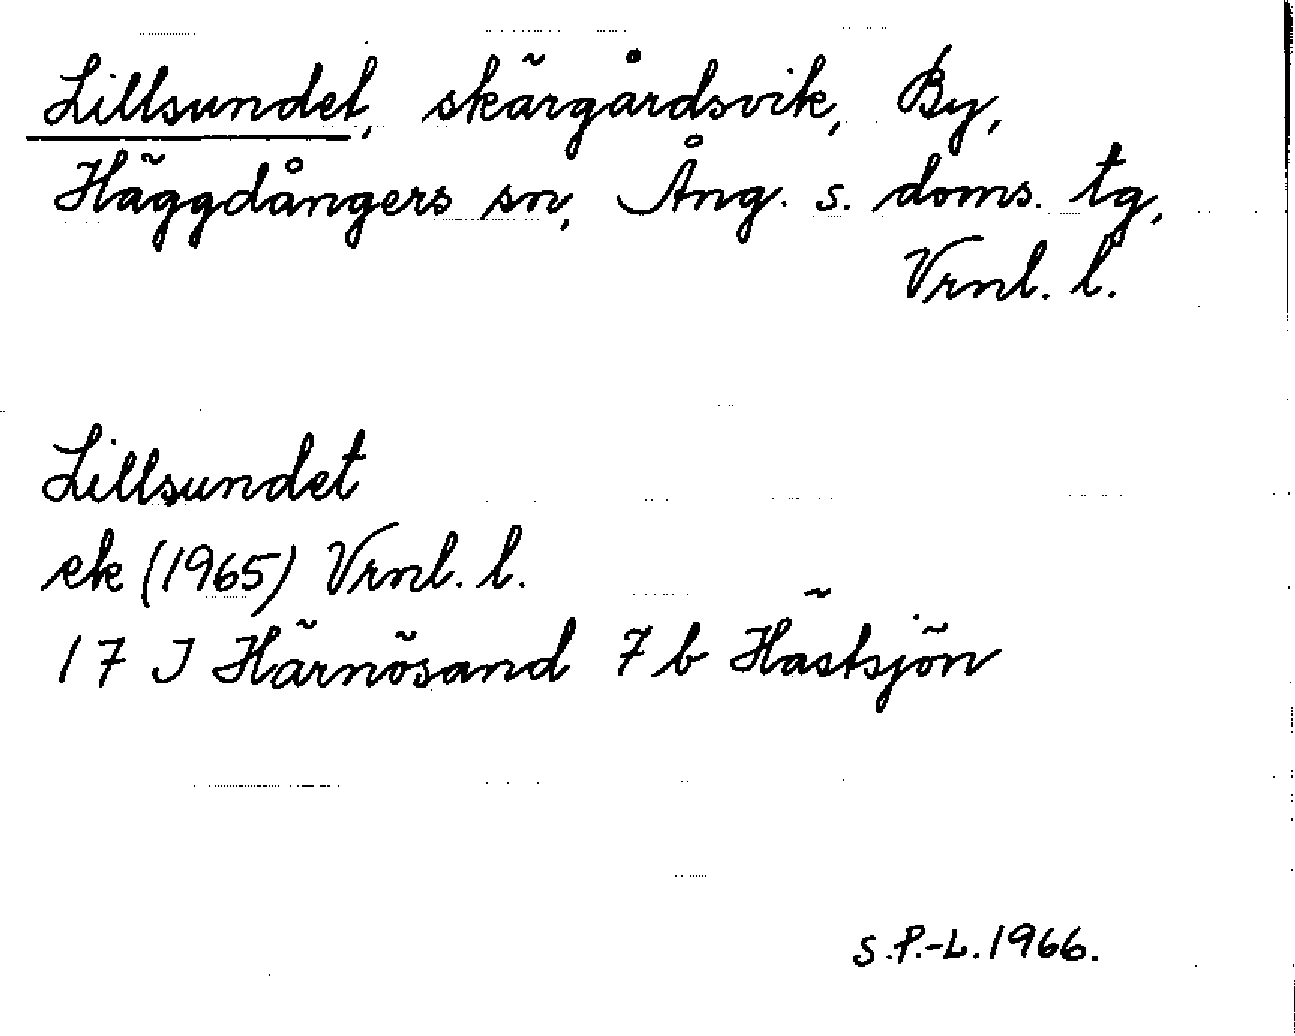 Lillsundet, skärgårdsvik, By,
Häggdångers sn, Ång. s. doms. tg,
Vrnl. l.
Lillsundet
ek (1965) Vrnl. l.
17 J Härnösand 7 b Hästsjön
S.P.-L. 1966.